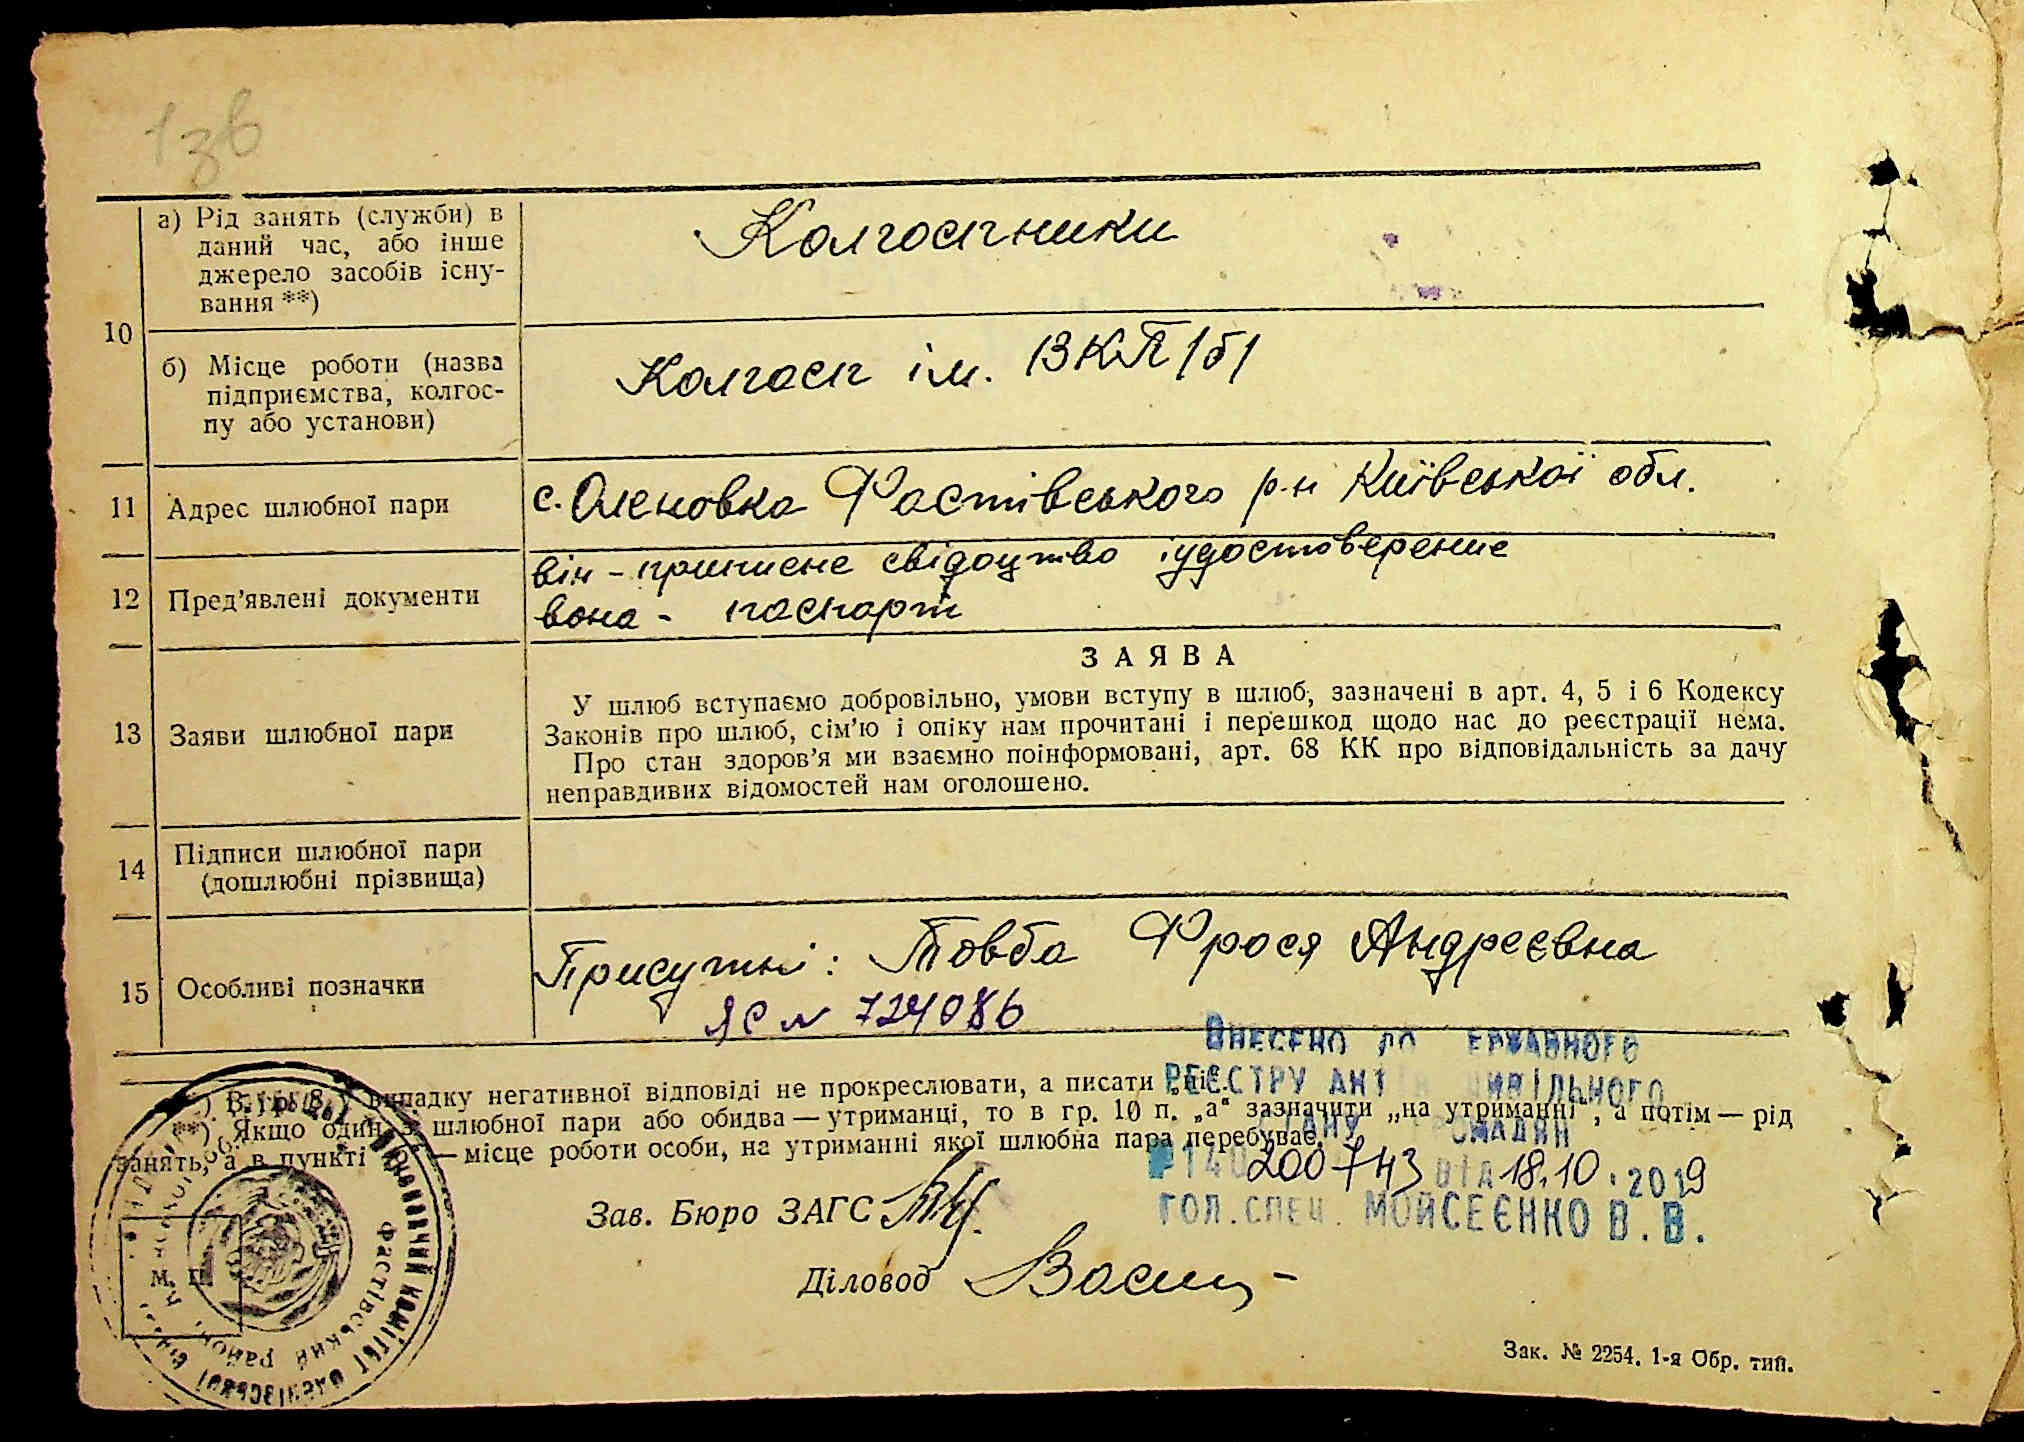 13б
а) Рід занять (служби) в
даний час, або інше
джерело засобів існу-
вання **)
Колгоспники
10
б) Місце роботи (назва
підприємства, колгос-
пу або установи)
Колгосп ім. ВКП/б/
11 Адрес шлюбної пари
с. Оленовка Фастівського р-н Київської обл.
12 Пред'явлені документи
він - приписне свідоцтво іудостоверение
вона - паспорт
13 Заяви шлюбної пари
ЗАЯВА
У шлюб вступаємо добровільно, умови вступу в шлюб, зазначені в арт. 4, 5 і 6 Кодексу
Законів про шлюб, сім'ю і опіку нам прочитані і перешкод щодо нас до реєстрації нема.
Про стан здоров'я ми взаємно поінформовані, арт. 68 КК про відповідальність за дачу
неправдивих відомостей нам оголошено.
14 Підписи шлюбної пари
(дошлюбні прізвища)
15 Особливі позначки
Присутні: Товба Фрося Андреєвна
ЯС № 724086
В гр. 8 у випадку негативної відповіді не прокреслювати, а писати „ні".
**) Якщо один з шлюбної пари або обидва — утриманці, то в гр. 10 п. „а" зазначити „на утриманні", а потім — рід
занять, а в пункті — місце роботи особи, на утриманні якої шлюбна пара перебуває.
ВНЕСЕНО ДО ЕРЖАВНОГО
РЕЄСТРУ АКТ ЦИВІЛЬНОГО
СТАНУ РОМАДЯН
140 200743 ВІД 18.10.2019
ГОЛ. СПЕЦ. МОЙСЕЄНКО В. В.
Зав. Бюро ЗАГС
Діловод
М. П.
ВИКОНАВЧИЙ КОМІТЕТ
Фастівський район
Зак. № 2254. 1-я Обр. тип.